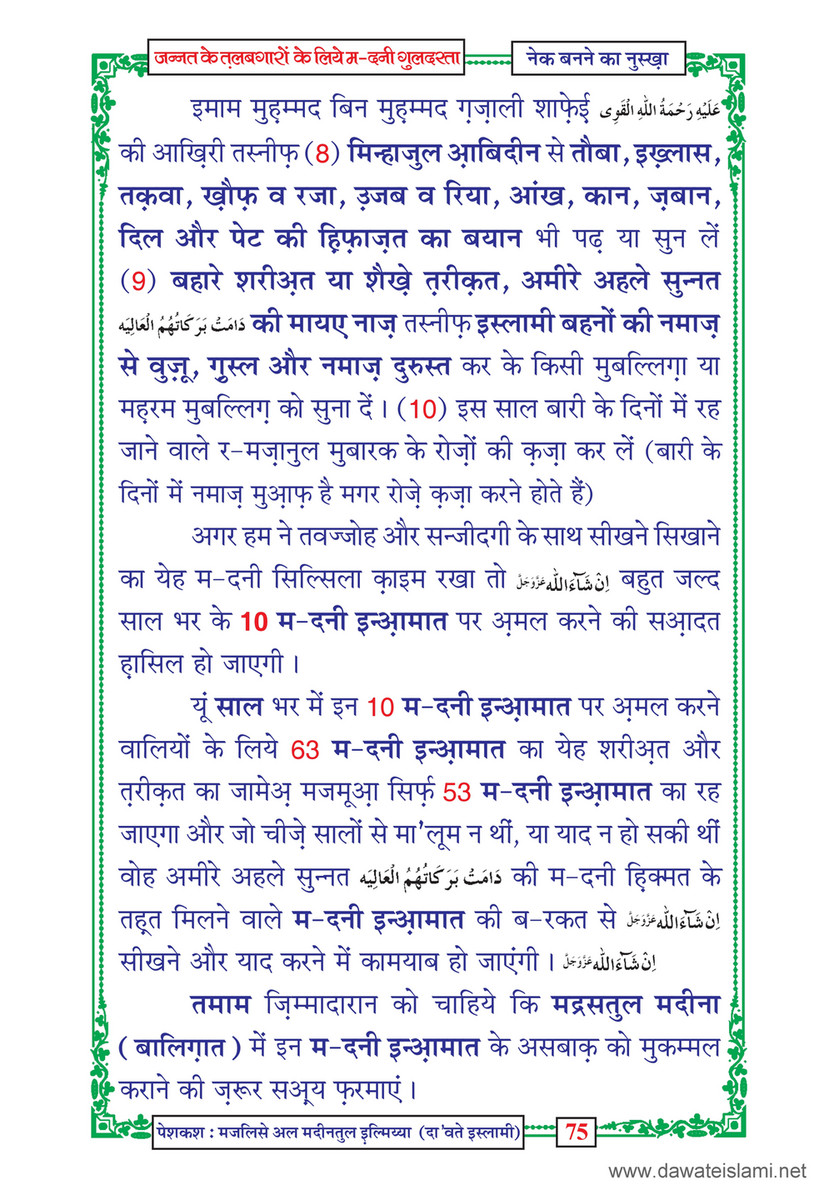 जन्नत के त़लबगारों के लिये म-दनी गुलदस्ता
नेक बनने का नुस्ख़ा
इमाम मुह़म्मद बिन मुह़म्मद ग़ज़ाली शाफ़ेई عَلَيْهِ رَحْمَةُ اللهِ الْقَوِى
की आख़िरी तस्नीफ़ (8) मिन्हाजुल आ़बिदीन से तौबा, इख़्लास,
तक़वा, ख़ौफ़ व रजा, उ़जब व रिया, आंख, कान, ज़बान,
दिल और पेट की ह़िफ़ाज़त का बयान भी पढ़ या सुन लें
(9) बहारे शरीअ़त या शैख़े त़रीक़त, अमीरे अहले सुन्नत
دَامَتْ بَرَكَاتُهُمُ الْعَالِيَه की मायए नाज़ तस्नीफ़ इस्लामी बहनों की नमाज़
से वुज़ू, ग़ुस्ल और नमाज़ दुरुस्त कर के किसी मुबल्लिग़ा या
मह़रम मुबल्लिग़ को सुना दें। (10) इस साल बारी के दिनों में रह
जाने वाले र-मज़ानुल मुबारक के रोज़ों की क़ज़ा कर लें (बारी के
दिनों में नमाज़ मुआ़फ़ है मगर रोज़े क़ज़ा करने होते हैं)
अगर हम ने तवज्जोह और सन्जीदगी के साथ सीखने सिखाने
का येह म-दनी सिल्सिला क़ाइम रखा तो اِنْ شَآءَ اللّٰه عَزَّوَجَلَّ बहुत जल्द
साल भर के 10 म-दनी इन्आ़मात पर अ़मल करने की सआ़दत
ह़ासिल हो जाएगी।
यूं साल भर में इन 10 म-दनी इन्आ़मात पर अ़मल करने
वालियों के लिये 63 म-दनी इन्आ़मात का येह शरीअ़त और
त़रीक़त का जामेअ़ मजमूआ़ सिर्फ़ 53 म-दनी इन्आ़मात का रह
जाएगा और जो चीज़े सालों से मा'लूम न थीं, या याद न हो सकी थीं
वोह अमीरे अहले सुन्नत دَامَتْ بَرَكَاتُهُمُ الْعَالِيَه की म-दनी ह़िक्मत के
तह़्त मिलने वाले म-दनी इन्आ़मात की ब-रकत से اِنْ شَآءَ اللّٰه عَزَّوَجَلَّ
सीखने और याद करने में कामयाब हो जाएंगी। اِنْ شَآءَ اللّٰه عَزَّوَجَلَّ
तमाम ज़िम्मादारान को चाहिये कि मद्रसतुल मदीना
(बालिग़ात) में इन म-दनी इन्आ़मात के असबाक़ को मुकम्मल
कराने की ज़रूर सअ़्य फ़रमाएं।
पेशकश : मजलिसे अल मदीनतुल इ़ल्मिय्या (दा'वते इस्लामी)
75
www.dawateislami.net